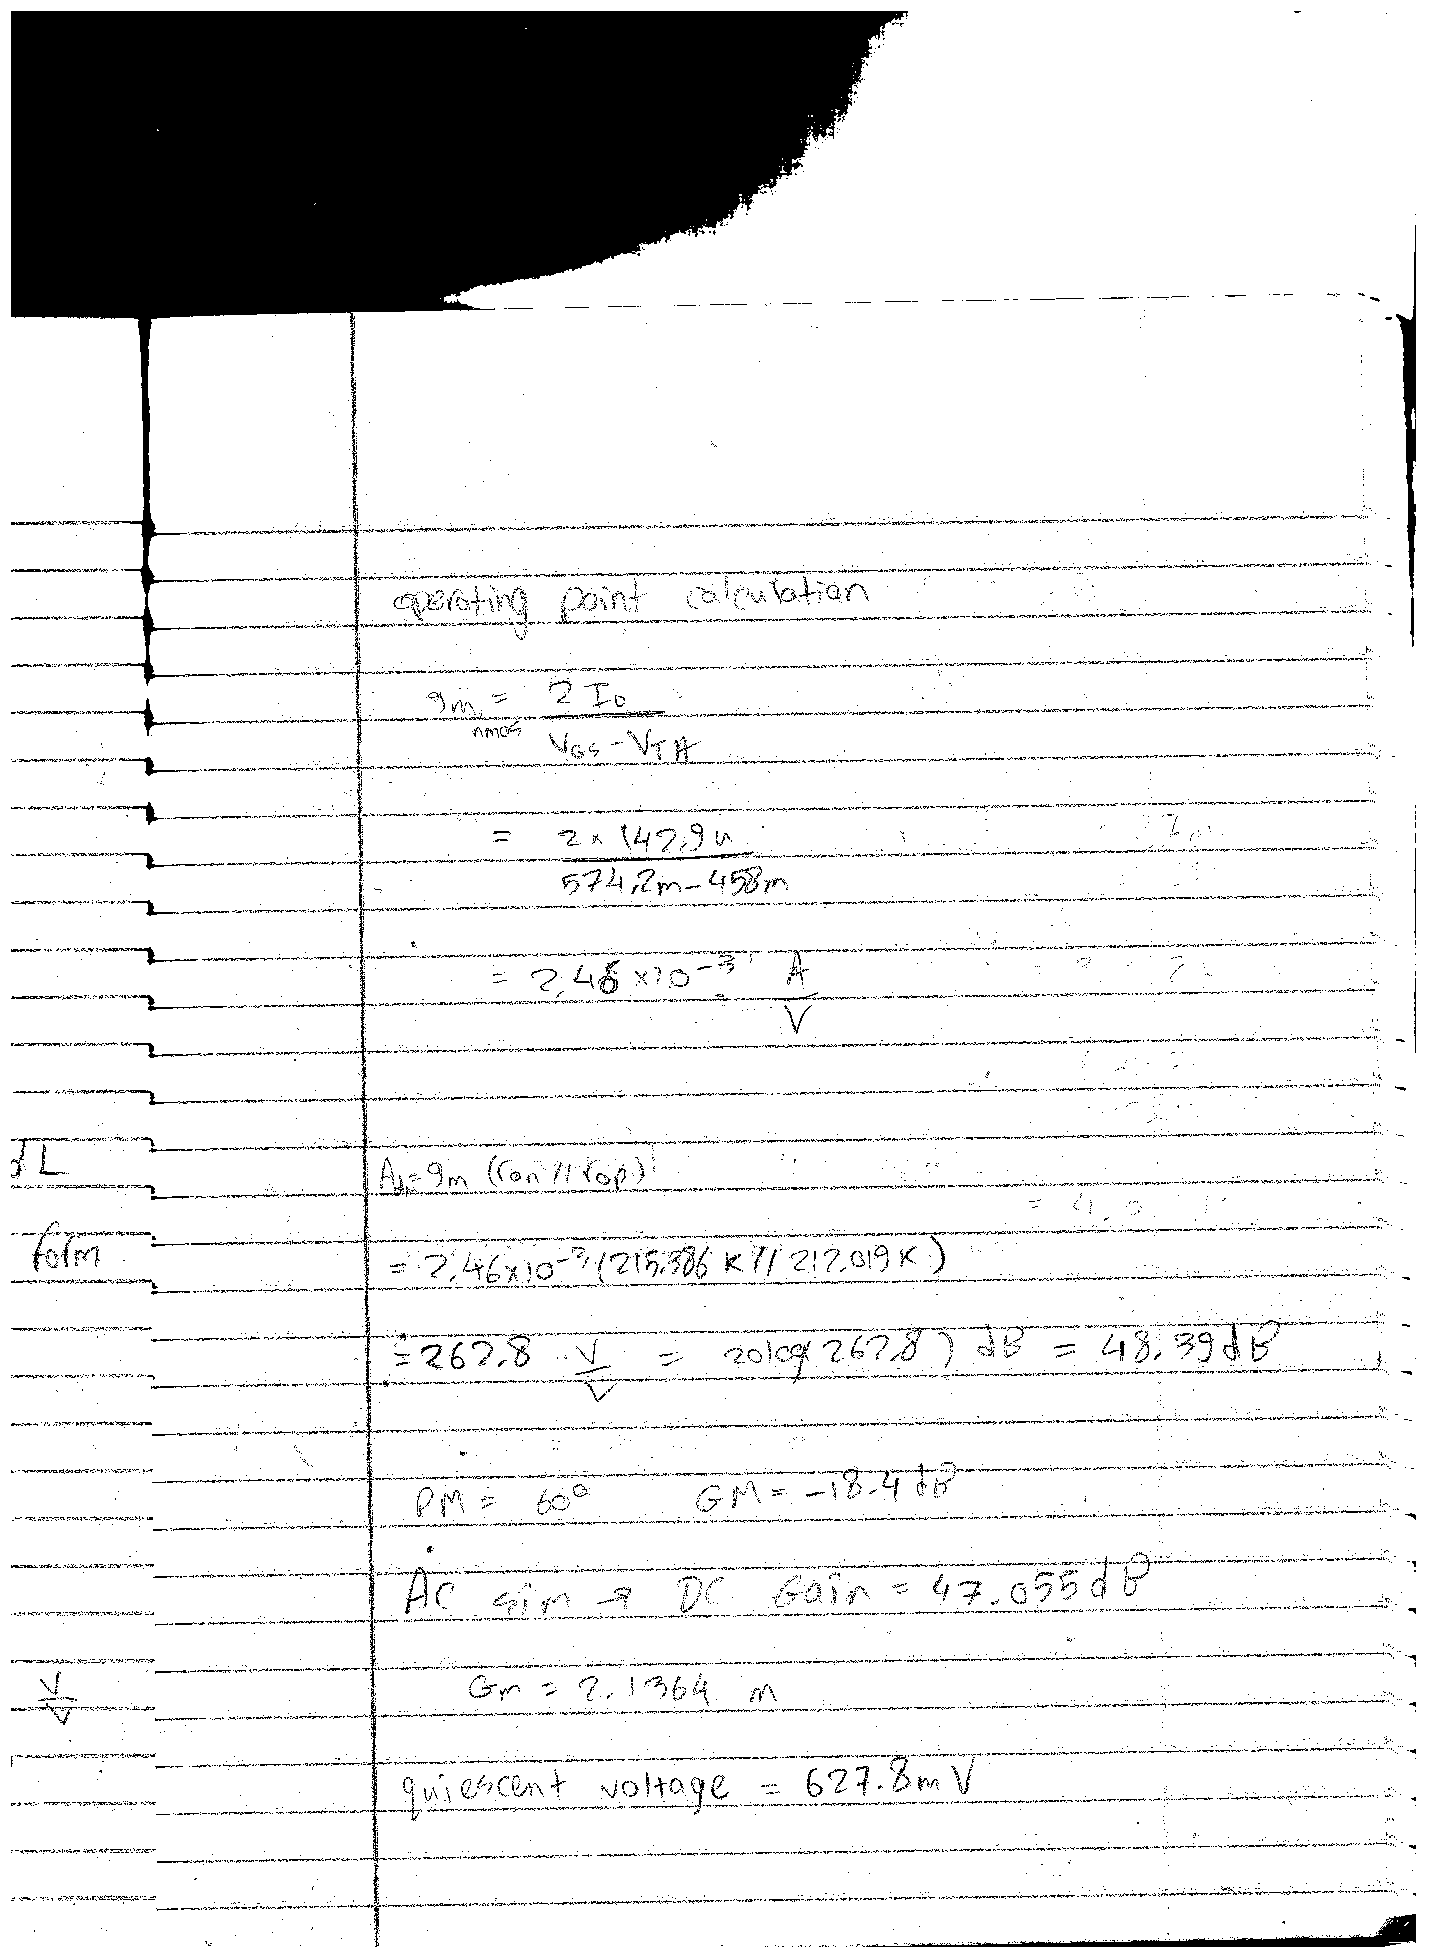 operating point calculation
gm nmos = 2 ID / VGS - VTH
= 2 x 142,9u / 574,2m - 458m
= 2,46 x 10^-3 A/V
L
Ad = gm (ron // rop)
form
= 2,46x10^-3 (215,386 K // 212,019K)
= 262,8 V/V = 20log(262,8) dB = 48,39dB
PM = 60° GM = -18.4 dB
AC sim → DC Gain = 47.055dB
V/V
Gm = 2.1364 m
quiescent voltage = 627.8m V